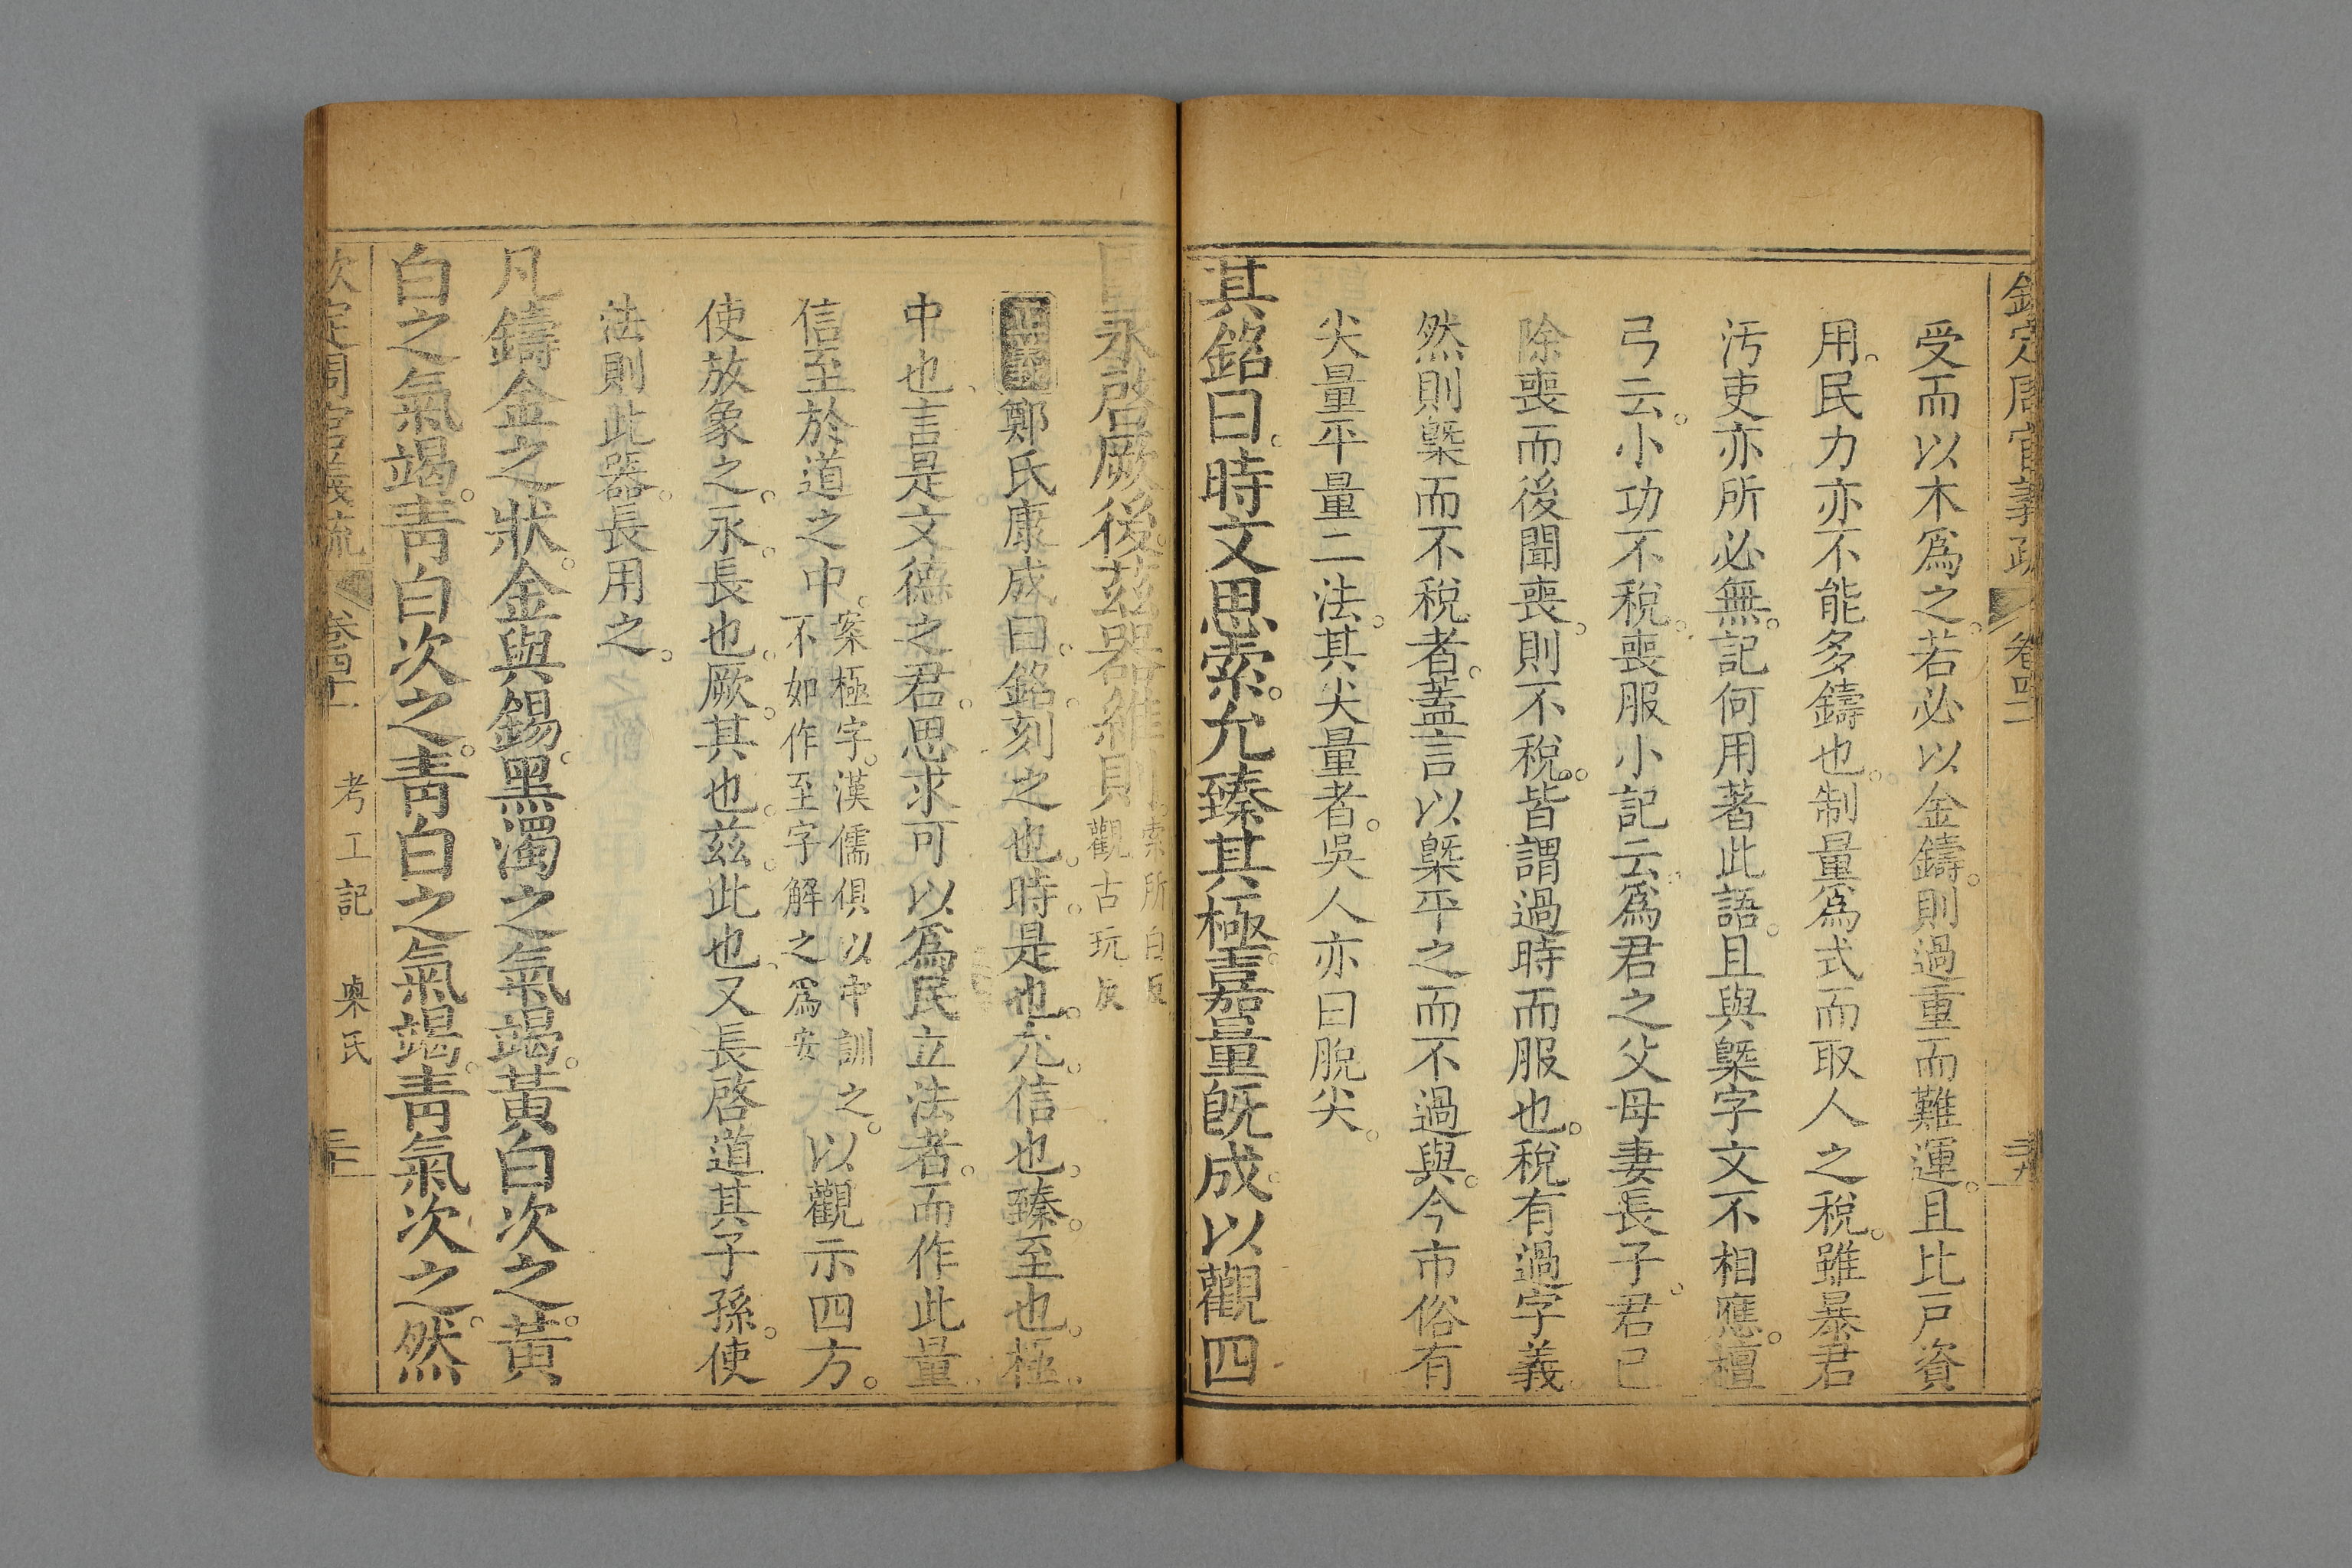 欽定周官義疏 卷四十二
受而以木爲之若必以金鑄則過重而難運且比戸資
用民力亦不能多鑄也制量爲式而取人之稅雖暴君
汚吏亦所必無記何用著此語且與槩字文不相應檀
弓云小功不稅喪服小記云爲君之父母妻長子君已
除喪而後聞喪則不稅皆謂過時而服也稅有過字義
然則槩而不稅者蓋言以槩平之而不過與今市俗有
尖量平量二法其尖量者吳人亦曰脫尖
其銘曰時文思索允臻其極嘉量既成以觀四
國永啓厥後茲器維則索所白反觀古玩反
正義鄭氏康成曰銘刻之也時是也允信也臻至也極
中也言是文德之君思求可以爲民立法者而作此量
信至於道之中案極字漢儒俱以中訓之不如作至字解之爲安以觀示四方
使放象之永長也厥其也茲此也又長啓道其子孫使
法則此器長用之
凡鑄金之狀金與錫黑濁之氣竭黃白次之黃
白之氣竭靑白次之靑白之氣竭靑氣次之然
欽定周官義疏 卷四十二 考工記 㮚氏